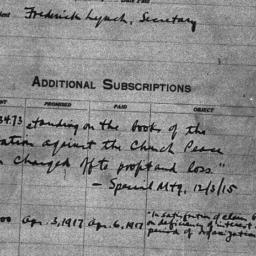 Frederick Lynch, Secretary
ADDITIONAL SUBSCRIPTIONS
PROMISED PAID OBJECT
34.73 standing on the books of the
ation against the Church Peace
n charged off to profit and loss."
— Special Mtg. 12/3/15
00 Apr. 3, 1917 Apr. 6, 1917 "In satisfaction of claim
on deficiency of interest
period of organization